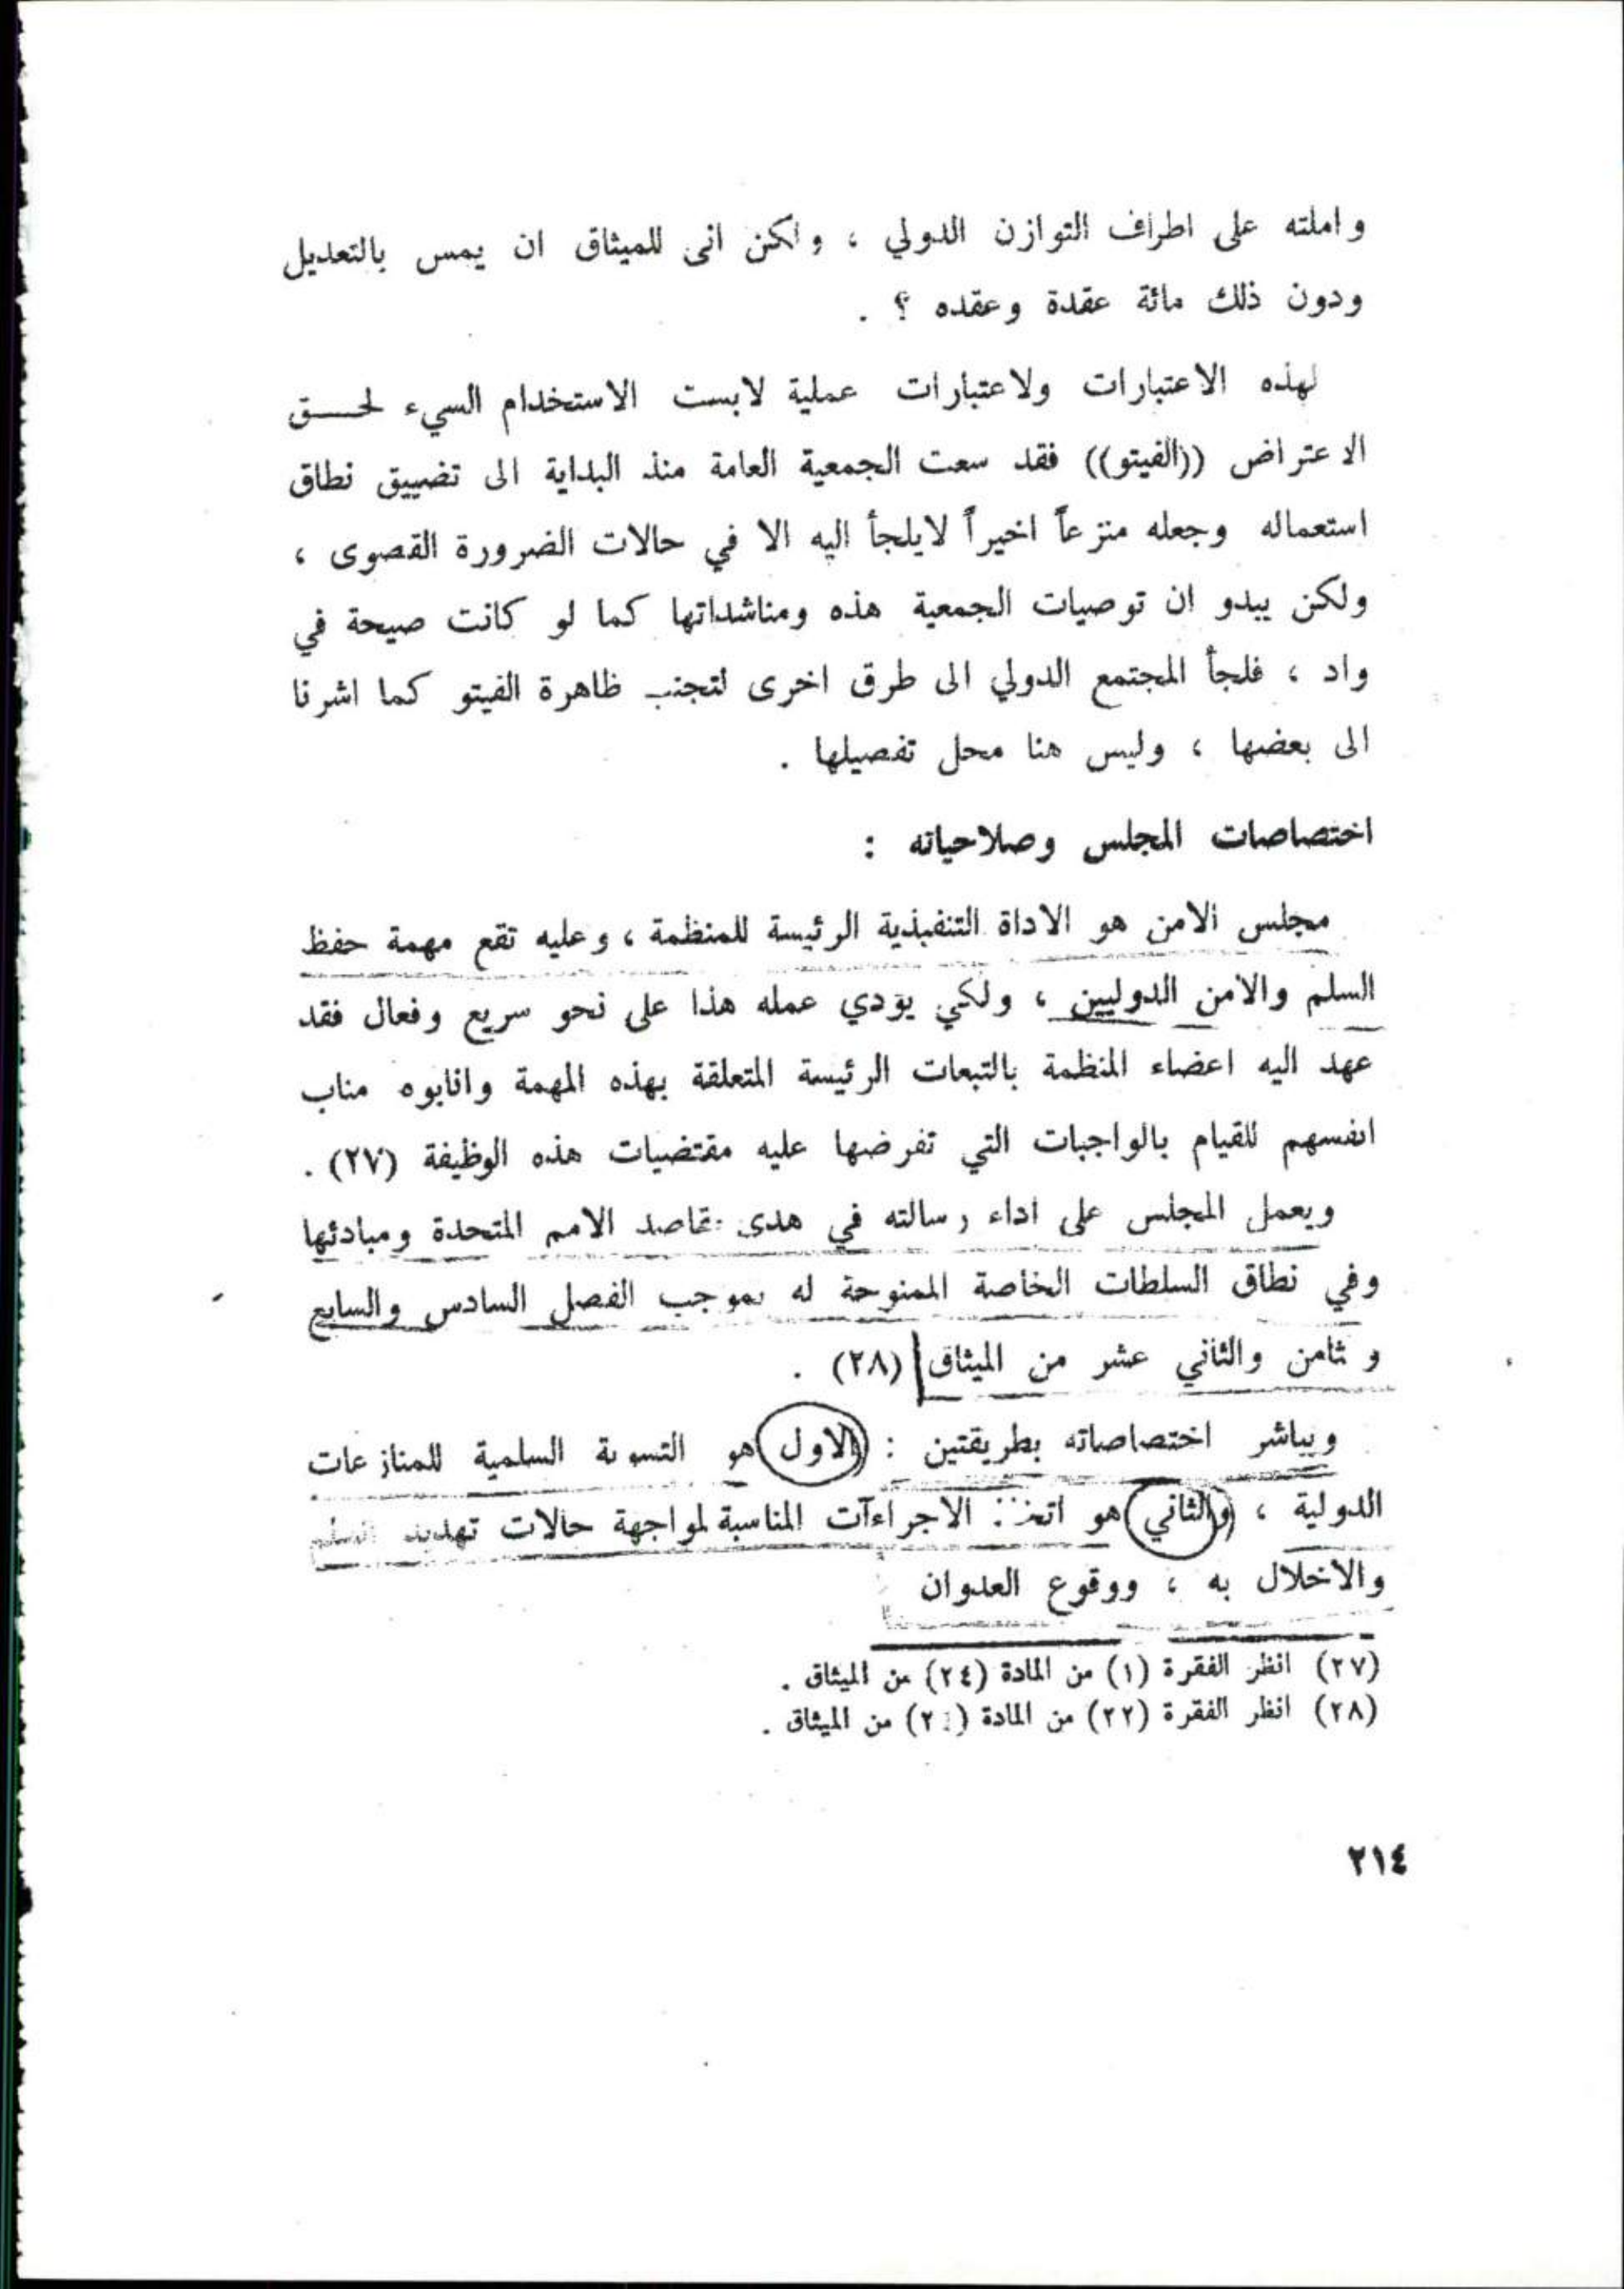 واملته على اطراف التوازن الدولي ، ولكن انى للميثاق ان يمس بالتعديل
ودون ذلك مائة عقدة وعقده ؟ .
لهذه الاعتبارات ولاعتبارات عملية لابست الاستخدام السيء لحـــق
الاعتراض ((الفيتو)) فقد سعت الجمعية العامة منذ البداية الى تضييق نطاق
استعماله وجعله منزعاً اخيراً لايلجأ اليه الا في حالات الضرورة القصوى ،
ولكن يبدو ان توصيات الجمعية هذه ومناشداتها كما لو كانت صيحة في
واد ، فلجأ المجتمع الدولي الى طرق اخرى لتجنب ظاهرة الفيتو كما اشرنا
الى بعضها ، وليس هنا محل تفصيلها .
اختصاصات المجلس وصلاحياته :
مجلس الامن هو الاداة التنفيذية الرئيسة للمنظمة ، وعليه تقع مهمة حفظ
السلم والامن الدوليين ، ولكي يؤدي عمله هذا على نحو سريع وفعال فقد
عهد اليه اعضاء المنظمة بالتبعات الرئيسة المتعلقة بهذه المهمة وانابوه مناب
انفسهم للقيام بالواجبات التي تفرضها عليه مقتضيات هذه الوظيفة (٢٧) .
ويعمل المجلس على اداء رسالته في هدى مقاصد الامم المتحدة ومبادئها
وفي نطاق السلطات الخاصة الممنوحة له بموجب الفصل السادس والسابع
و ثامن والثاني عشر من الميثاق (٢٨) .
ويباشر اختصاصاته بطريقتين : (الاول) هو التسوية السلمية للمنازعات
الدولية ، (والثاني) هو اتخاذ الاجراءآت المناسبة لمواجهة حالات تهديد السلم
والاخلال به ، ووقوع العدوان
(٢٧) انظر الفقرة (١) من المادة (٢٤) من الميثاق .
(٢٨) انظر الفقرة (٢٢) من المادة من الميثاق .
٢١٤